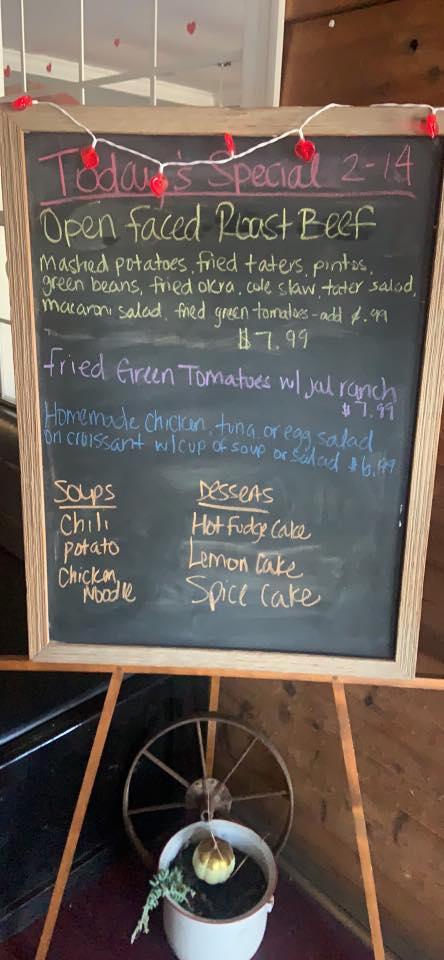 Today's Special 2-14
Open faced Roast Beef
Mashed potatoes, fried taters, pintos,
green beans, fried okra, cole slaw, tater salad,
macaroni salad, fried green tomatoes - add $.99
$7.99
fried Green Tomatoes w/ jal ranch
$7.99
Homemade chicken, tuna, or egg salad
on croissant w/ cup of soup or salad $6.99
Soups
Chili
potato
Chicken
Noodle
Desserts
Hot Fudge Cake
Lemon Cake
Spice Cake